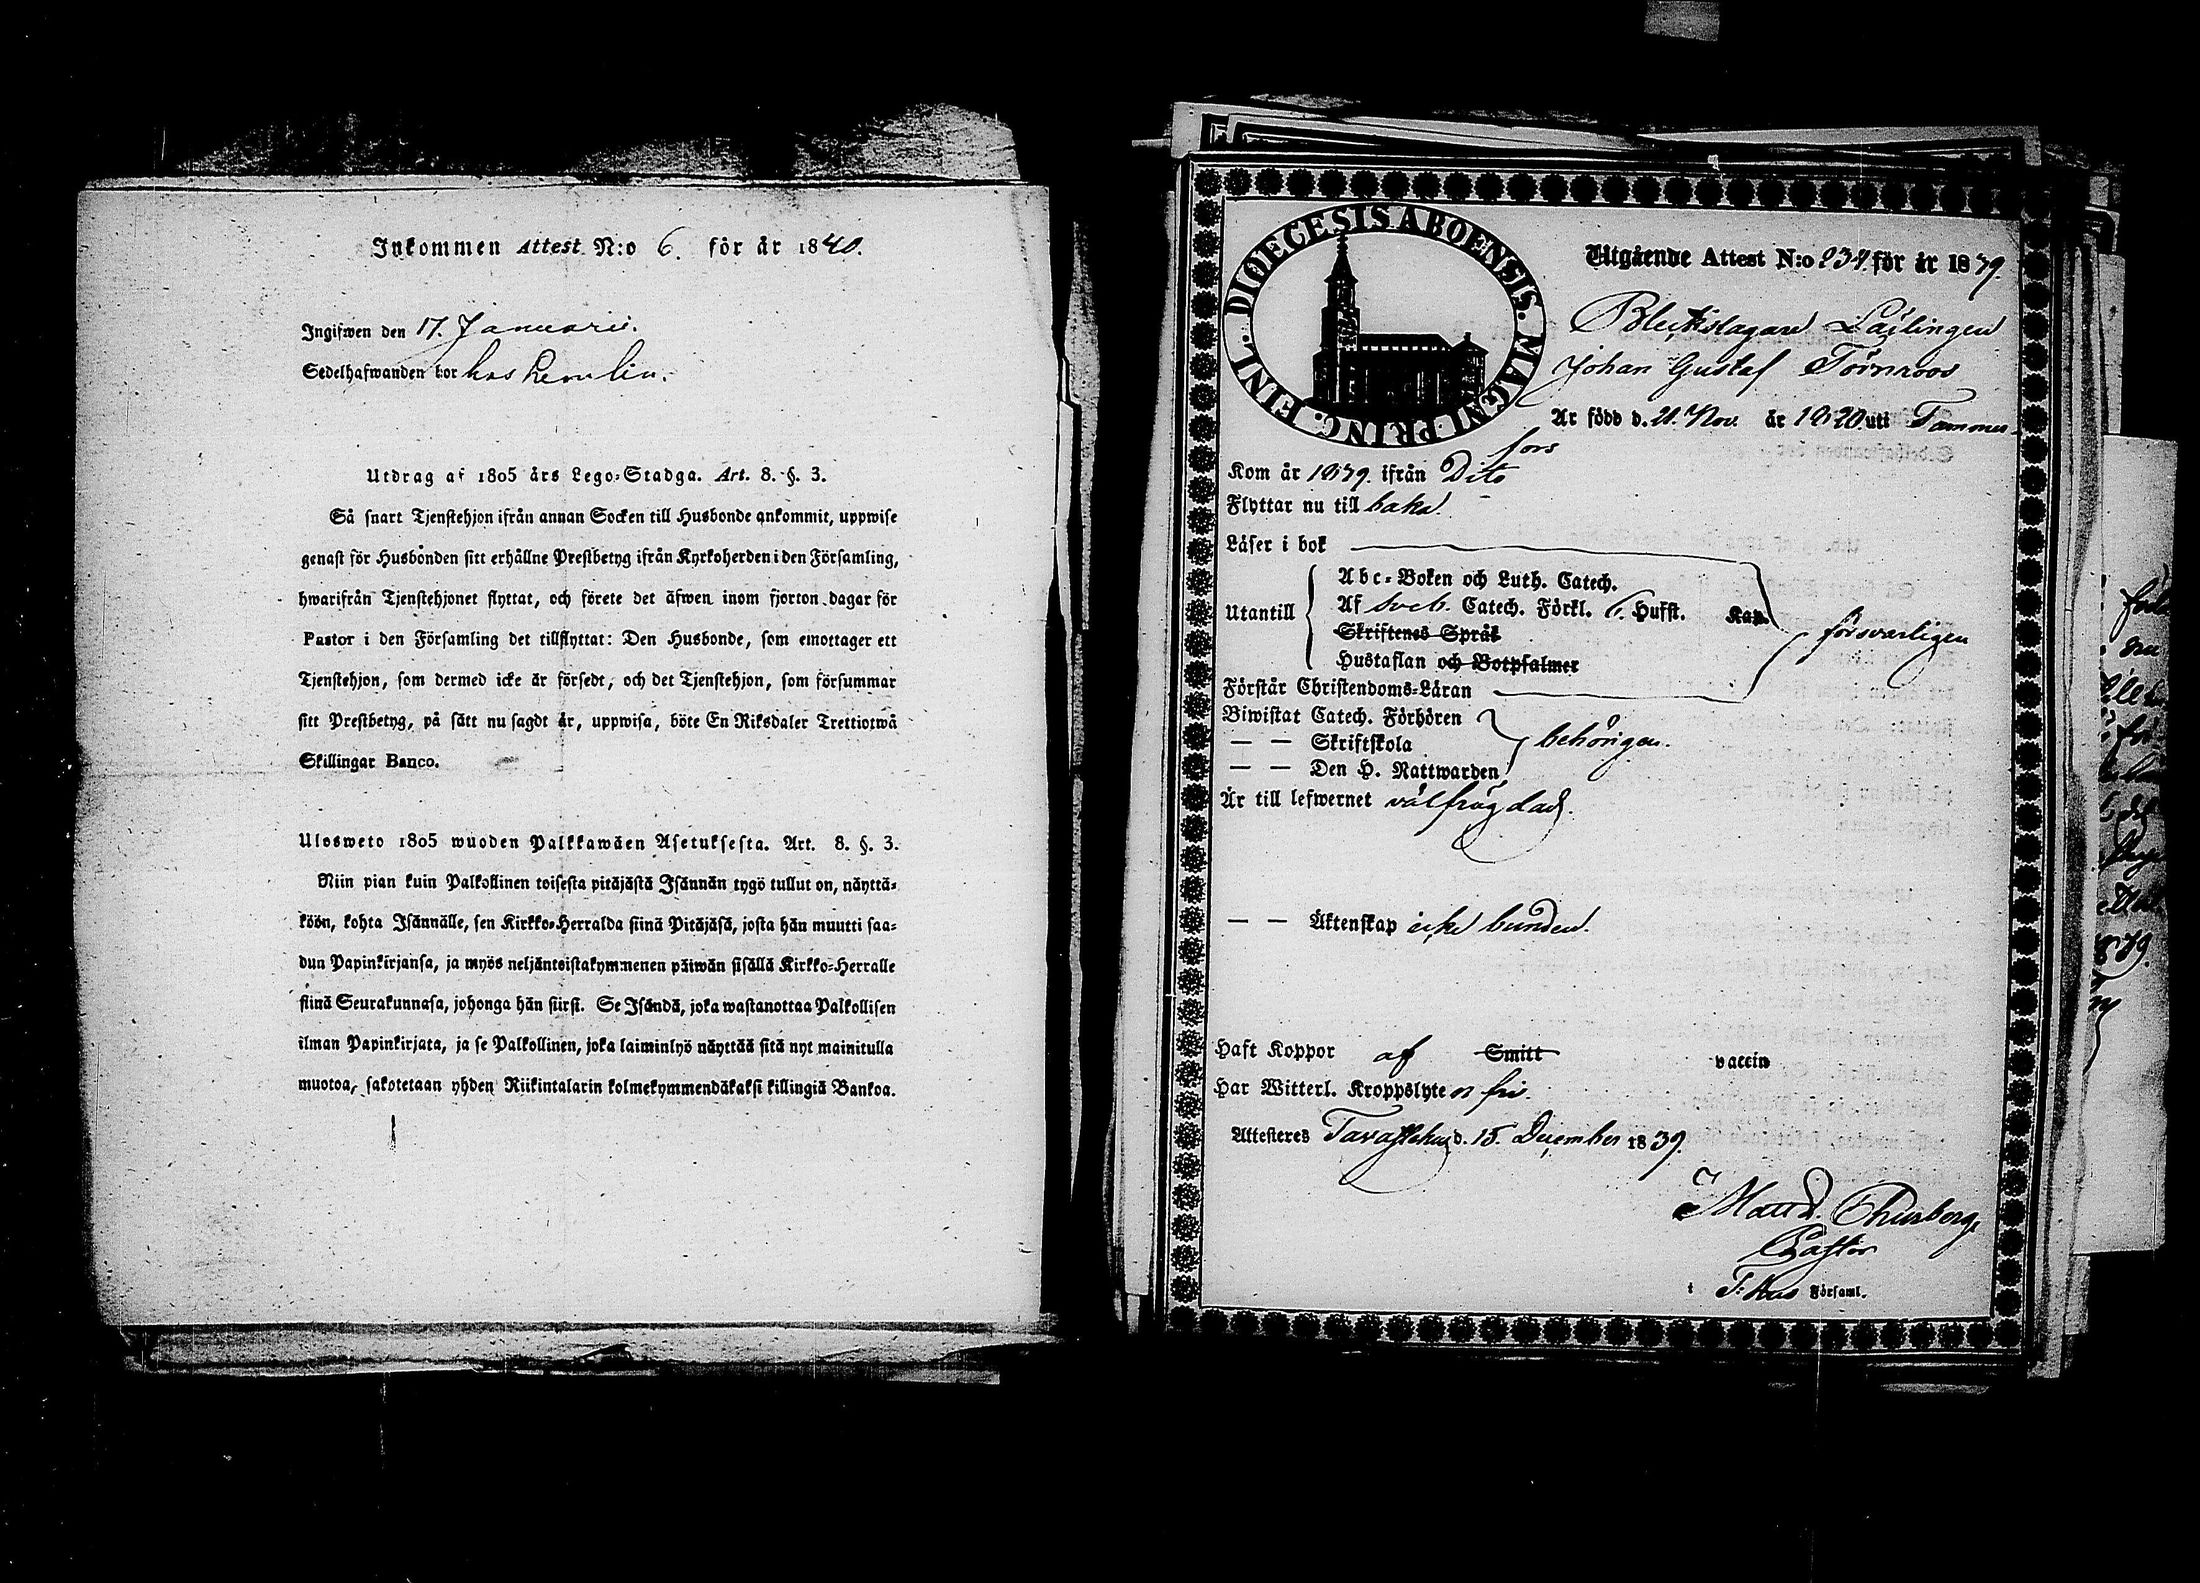 Inkommen Attest N:o 6. för år 1840.
Ingifwen den 17. Januarii.
Sedelhafwanden bor hos
Utdrag af 1805 års Lego-Stadga. Art. 8. §. 3.
Så snart Tjenstehjon ifrån annan Socken till Husbonde ankommit, uppwise
genast för Husbonden sitt erhållne Prestbetyg ifrån Kyrkoherden i den Församling,
hwarifrån Tjenstehjonet flyttat, och förete det äfwen inom fjorton dagar för
Pastor i den Församling det tillflyttat: Den Husbonde, som emottager ett
Tjenstehjon, som dermed icke är försedt, och det Tjenstehjon, som försummar
sitt Prestbetyg, på sätt nu sagdt är, uppwisa, böte En Riksdaler Trettiotwå
Skillingar Banco.
Ulosweto 1805 wuoden Palkkawäen Asetuksesta. Art. 8. §. 3.
Niin pian kuin Palkollinen toisesta pitäjästä Isännän tygö tullut on, näyttä-
köön, kohta Isännälle, sen Kirkko-Herralda siinä Pitäjäsä, josta hän muutti saa-
dun Papinkirjansa, ja myös neljäntoistakymmenen päiwän sisällä Kirkko-Herralle
siinä Seurakunnasa, johonga hän siirsi. Se Isändä, joka wastanottaa Palkollisen
ilman Papinkirjata, ja se Palkollinen, joka laiminlyö näyttää sitä nyt mainitulla
muotoa, sakotetaan yhden Riikintalarin kolmekymmendäkaksi killingiä Bankoa.
DIOECESIS ABOENSIS. MAGNI PRINC. FINL.
Utgående Attest N:o 234. för år 1839.
Bleckslagare Lärlingen
Johan Gustaf Törnroos
Är född d. 21. Nov. år 1820 uti Tammer-
fors
Kom år 1839. ifrån Dito
Flyttar nu till baka.
Läser i bok
Abc-Boken och Luth. Catech.
Utantill Af Sveb. Catech. Förkl. 6. Hufst. Kap. försvarligen
Skriftenes Språk
Hustaflan och Botpsalmer
Förstår Christendoms-Läran
Biwistat Catech. Förhören
— — Skriftskola behörigen.
— — Den H. Nattwarden
Är till lefwernet välfrägdad.
— — Äktenskap icke bunden.
Haft Koppor af Smitt vaccin
Har Witterl. Kroppslyte n fri.
Attesteres Tavastehus d. 15. December 1839.
Matt. Thusberg,
Pastor
i T:hus Församl.